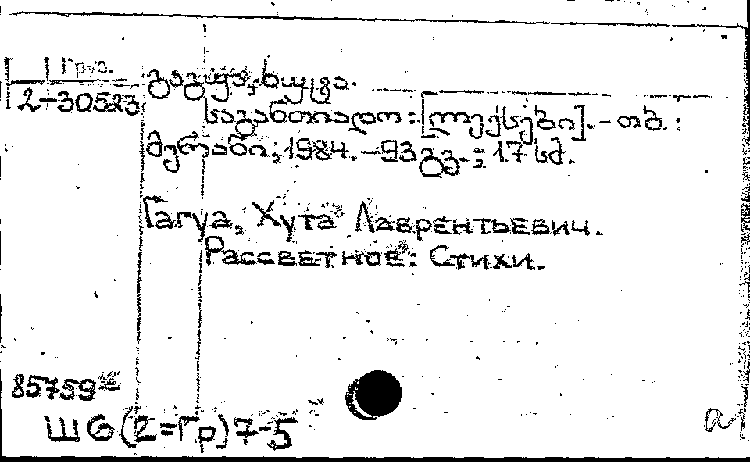 Груз.
2-30523
გაგუა, ხუტა.
საგანთიადო: [ლექსები]. – თბ.:
მერანი, 1984. – 93 გვ.; 17 სმ.
Гагуа, Хута Лаврентьевич.
Рассветное: Стихи.
85759
Ш6(2=Гр)7-5
а